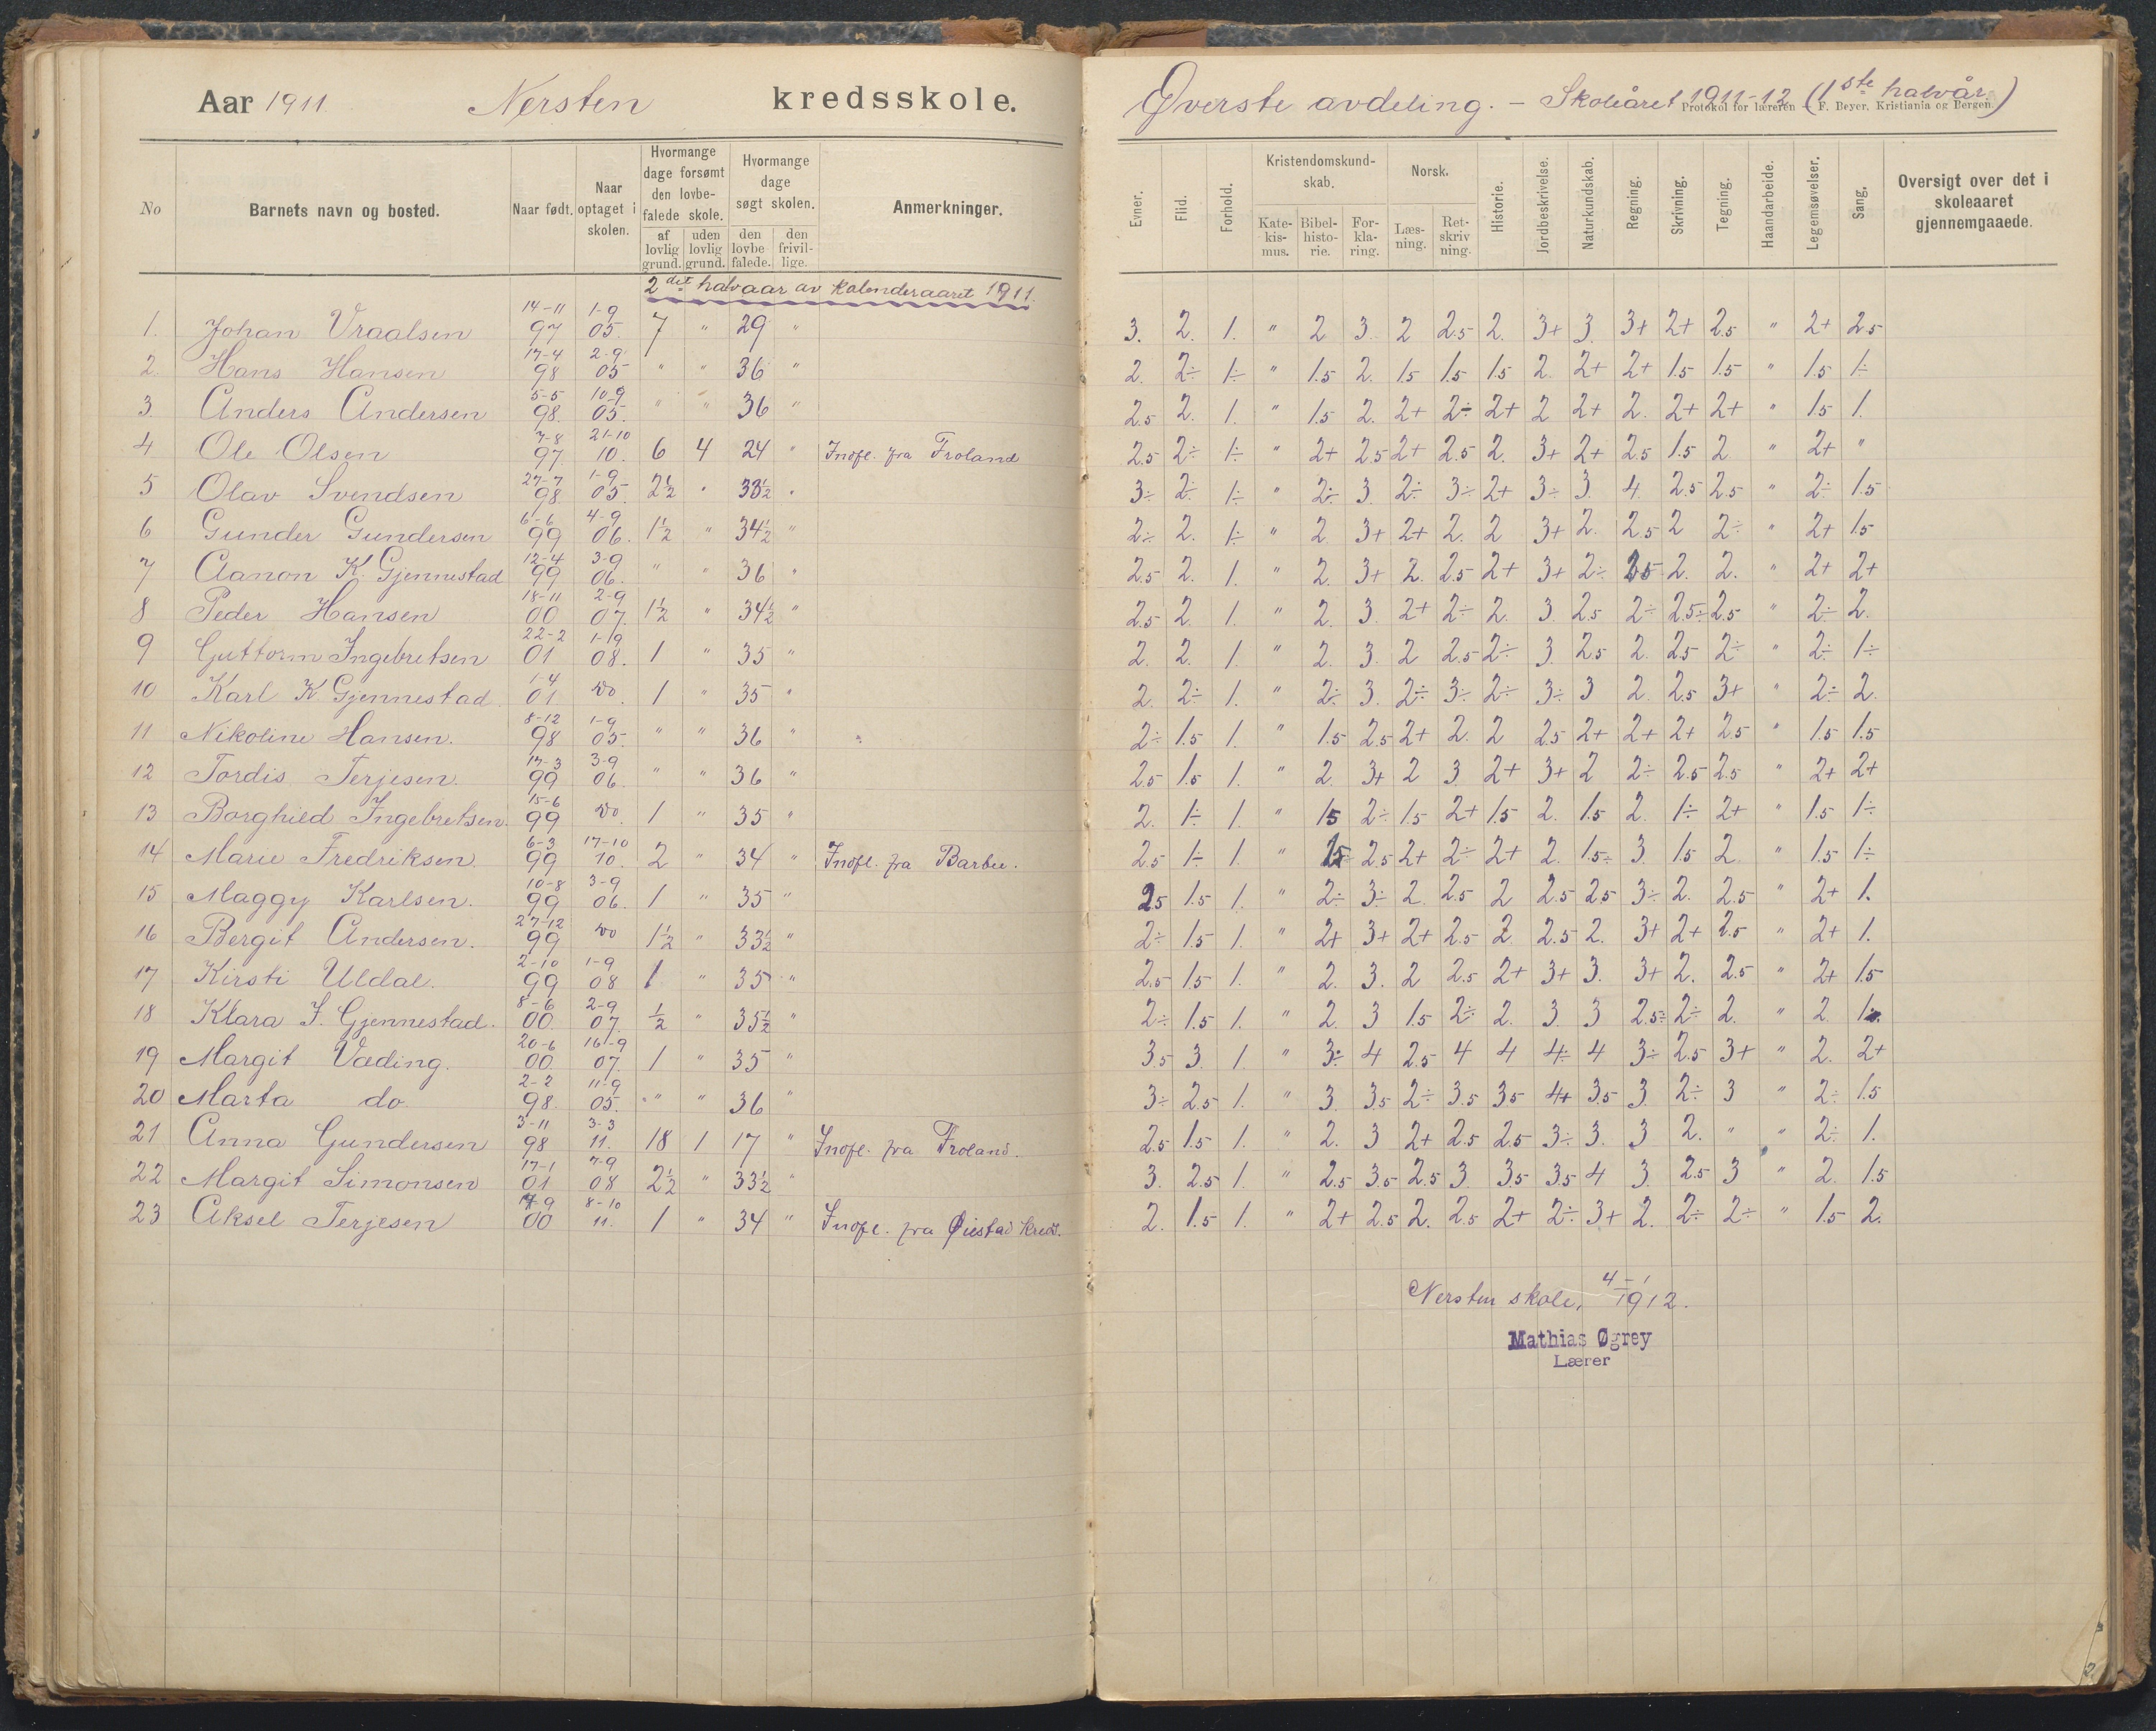 Aar 1911 Nersten kredsskole.
No
Barnets navn og bosted.
Naar født.
Naar optaget i skolen.
Hvormange dage forsømt den lovbe-falede skole.
af lovlig grund.
uden lovlig grund.
Hvormange dage søgt skolen.
den lovbe falede.
den frivil-lige.
Anmerkninger.
2det halvaar av kalenderaaret 1911.
1. Johan Vraalsen 14-11 97 1-9 05. 7 " 29 "
2. Hans Hansen 17-4 98 2-9 05 " " 36 "
3. Anders Andersen 5-5 98. 10-9 05. " " 36 "
4 Ole Olsen 7-8 97. 21-10 10. 6 4 24 " Innfl. fra Froland
5 Olav Svendsen 27-7 98 1-9 05. 2½ " 33½ "
6 Gunder Gundersen 6-6 99 4-9 06. 1½ " 34½ "
7 Aanon K. Gjennestad 12-4 99 3-9 06. " " 36 "
8 Peder Hansen 18-11 00 2-9 07. 1½ " 34½ "
9 Guttorm Ingebretsen 22-2 01 1-9 08. 1 " 35 "
10 Karl K. Gjennestad 1-4 01 do. 1 " 35 "
11 Nikoline Hansen. 8-12 98 1-9 05. " " 36 "
12 Tordis Terjesen. 17-3 99 3-9 06. " " 36 "
13 Borghild Ingebretsen. 15-6 99 do. 1 " 35 "
14 Marie Fredriksen 6-3 99 17-10 10. 2 " 34 " Innfl. fra Barbu.
15 Maggy Karlsen. 10-8 99 3-9 06. 1 " 35 "
16 Bergit Andersen. 27-12 99 do 1½ " 33½ "
17 Kirsti Uldal. 2-10 99 1-9 08 1 " 35 "
18 Klara J. Gjennestad. 8-6 00. 2-9 07. ½ " 35½ "
19 Margit Væding. 20-6 00. 16-9 07. 1 " 35 "
20 Marta do. 2-2 98. 11-9 05. " " 36 "
21 Anna Gundersen 3-11 98 3-3 11. 18 1 17 " Innfl. fra Froland.
22 Margit Simonsen 17-1 01 7-9 08 2½ " 33½ "
23 Aksel Terjesen 00 8-10 11. 1 " 34 " Innfl. fra Øiestad kreds.
Øverste avdeling. – Skoleåret 1911-12 (1ste halvår)
Protokol for læreren F. Beyer, Kristiania og Bergen.
Evner.
Flid.
Forhold.
Kristendomskund-skab.
Kate-kis-mus.
Bibel-histo-rie.
For-kla-ring.
Norsk.
Læs-ning.
Ret-skriv ning.
Historie.
Jordbeskrivelse.
Naturkundskab.
Regning.
Skrivning.
Tegning.
Haandarbeide.
Legemsøvelser.
Sang.
Oversigt over det i skoleaaret gjennemgaaede.
3. 2. 1. " 2 3. 2 2.5 2. 3+ 3. 3+ 2+ 2.5 " 2+ 2.5
2. 2÷ 1÷ " 1.5 2. 1.5 1.5 1.5 2. 2+ 2+ 1.5 1.5 " 1.5 1÷
2.5 2. 1. " 1.5 2. 2+ 2÷ 2+ 2 2+ 2. 2+ 2+ " 1.5 1.
2.5 2÷ 1÷ " 2+ 2.5 2+ 2.5 2. 3+ 2+ 2.5 1.5 2 " 2+ "
3÷ 2÷ 1÷ " 2÷ 3. 2÷ 3÷ 2+ 3÷ 3. 4. 2.5 2.5 " 2÷ 1.5
2÷ 2. 1÷ " 2 3+ 2+ 2. 2 3+ 2. 2.5 2 2÷ " 2+ 1.5
2.5 2. 1. " 2. 3+ 2. 2.5 2+ 3+ 2÷ 2.5 2. 2. " 2+ 2+
2.5 2. 1. " 2. 3. 2+ 2÷ 2. 3. 2.5 2÷ 2.5÷ 2.5 " 2÷ 2.
2. 2. 1. " 2. 3. 2 2.5 2÷ 3. 2.5 2. 2.5 2÷ " 2÷ 1÷
2. 2÷ 1. " 2÷ 3. 2÷ 3÷ 2÷ 3÷ 3 2. 2.5 3+ " 2÷ 2.
2÷ 1.5 1. " 1.5 2.5 2+ 2. 2 2.5 2+ 2+ 2+ 2.5 " 1.5 1.5
2.5 1.5 1. " 2. 3+ 2 3 2+ 3+ 2 2÷ 2.5 2.5 " 2+ 2+
2. 1÷ 1. " 1.5 2÷ 1.5 2+ 1.5 2. 1.5 2. 1÷ 2+ " 1.5 1÷
2.5 1÷ 1. " 1.5÷ 2.5 2+ 2÷ 2+ 2. 1.5÷ 3. 1.5 2. " 1.5 1÷
2.5 1.5 1. " 2÷ 3÷ 2. 2.5 2 2.5 2.5 3÷ 2. 2.5 " 2+ 1.
2÷ 1.5 1. " 2+ 3+ 2+ 2.5 2. 2.5 2. 3+ 2+ 2.5 " 2+ 1.
2.5 1.5 1. " 2. 3. 2 2.5 2+ 3+ 3. 3+ 2. 2.5 " 2+ 1.5
2÷ 1.5 1. " 2. 3 1.5 2÷ 2. 3. 3 2.5÷ 2÷ 2. " 2
3.5 3. 1. " 3÷ 4 2.5 4 4 4÷ 4 3÷ 2.5 3+ " 2. 2+
3÷ 2.5 1. " 3. 3.5 2÷ 3.5 3.5 4+ 3.5 3. 2÷ 3 " 2÷ 1.5
2.5 1.5 1. " 2. 3 2+ 2.5 2.5 3÷ 3. 3 2. " " 2÷ 1.
3. 2.5 1. " 2.5 3.5 2.5 3. 3.5 3.5 4 3. 2.5 3 " 2. 1.5
2. 1.5 1. " 2+ 2.5 2. 2.5 2+ 2÷ 3+ 2. 2÷ 2÷ " 1.5 2.
Nersten skole, 4-1 1912.
Mathias Øgrey
Lærer